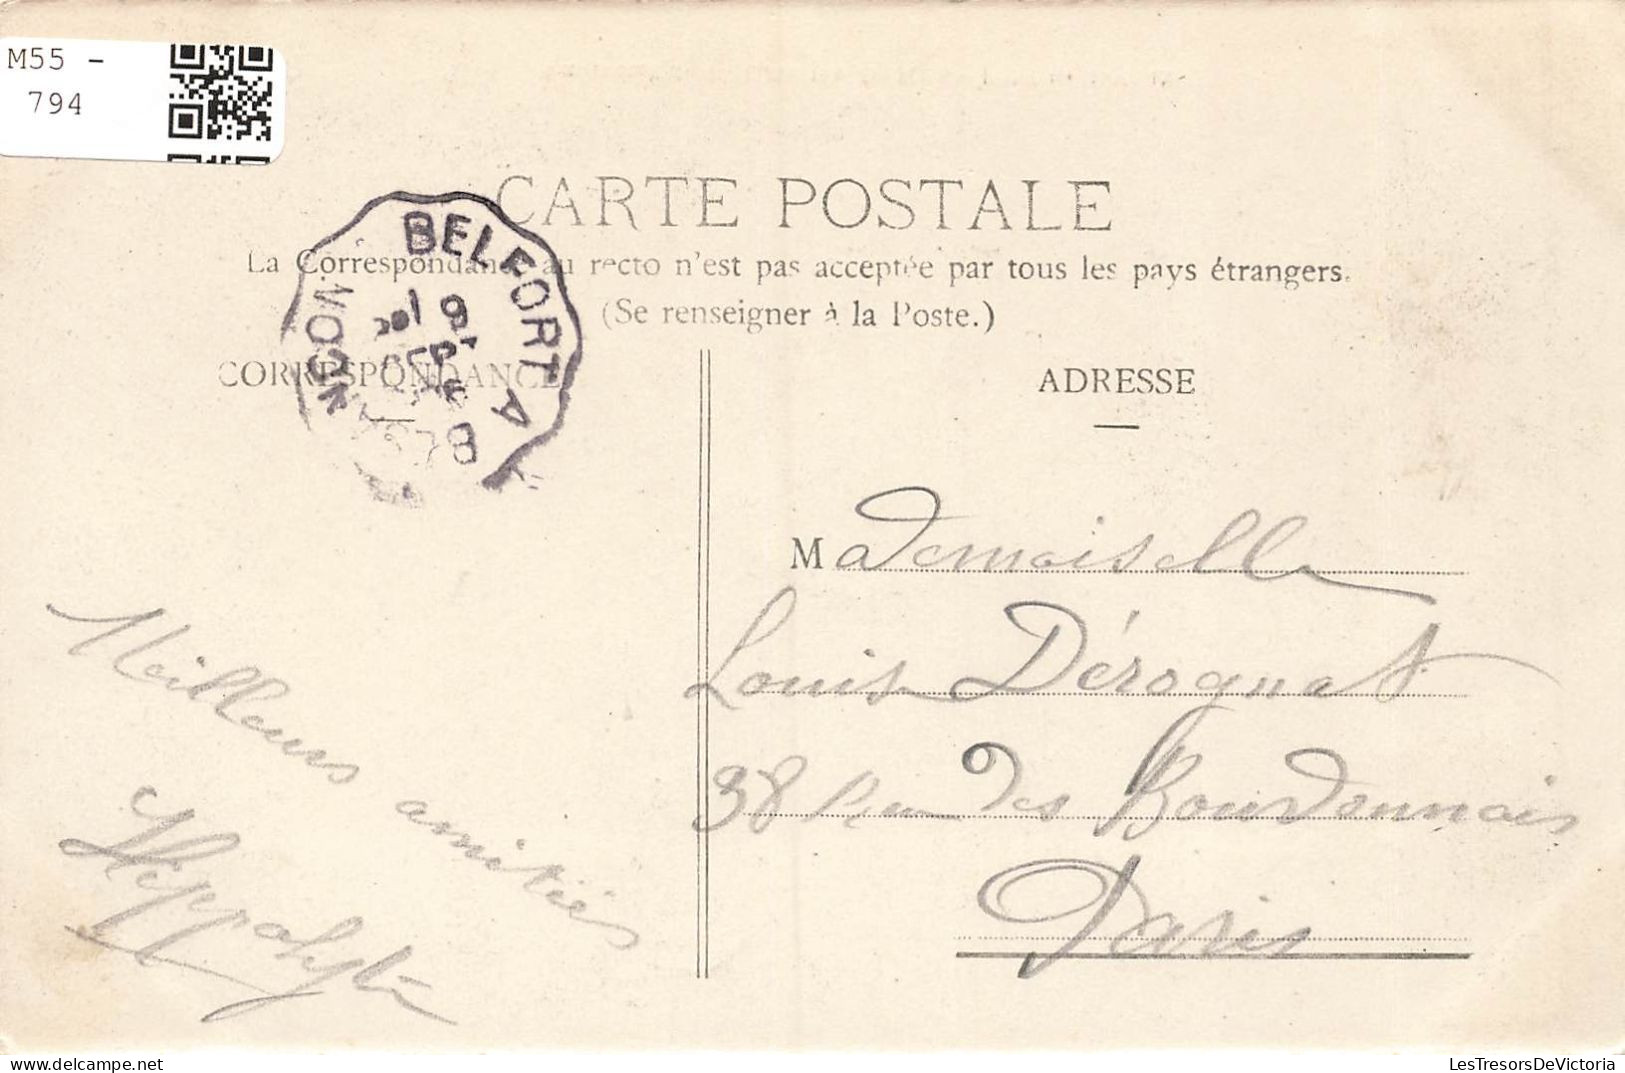 M55 -
794
CARTE POSTALE
La Correspondance au recto n'est pas acceptée par tous les pays étrangers.
(Se renseigner à la Poste.)
BELFORT A
CORRESPONDANCE
ADRESSE
Mademoiselle
Louis Dérognat
38 Rue des Bourdonnais
Paris
Meilleurs amitiés
Hippolyte
LesTresorsDeVictoria